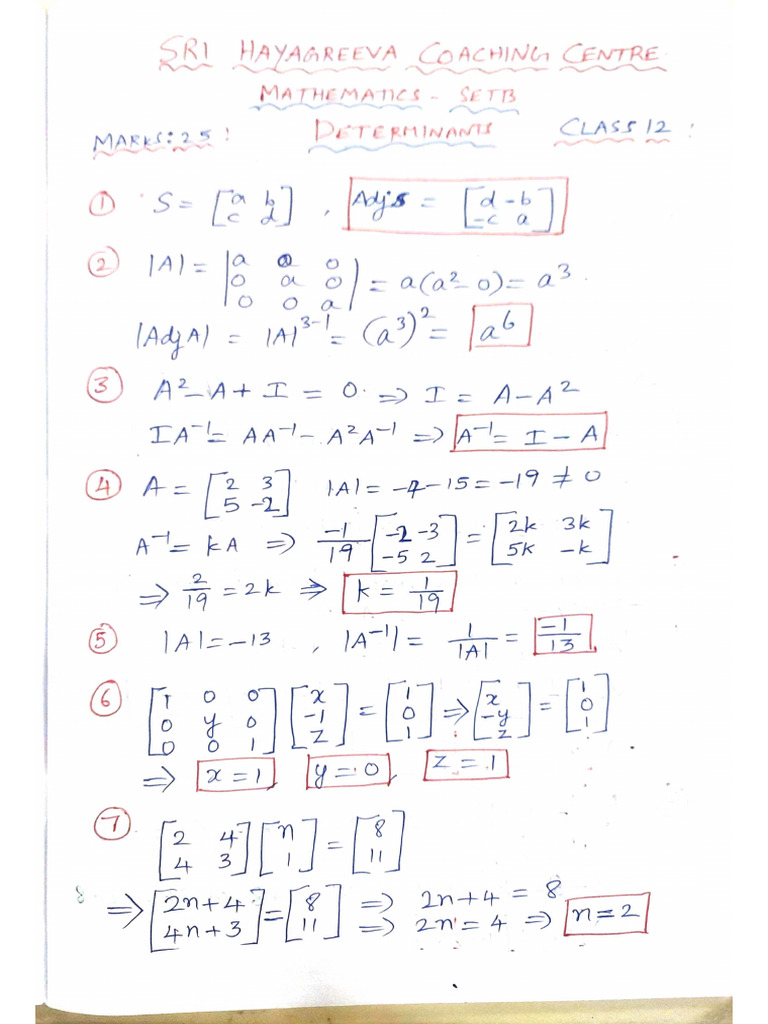 SRI HAYAGREEVA COACHING CENTRE
MATHEMATICS - SETB
MARKS: 25 : DETERMINANTS CLASS 12 :
① S = [a b; c d] , Adj s = [d -b; -c a]
② |A| = |a 0 0; 0 a 0; 0 0 a| = a(a² - 0) = a³
|Adj A| = |A|³⁻¹ = (a³)² = a⁶
③ A² - A + I = 0. ⇒ I = A - A²
IA⁻¹ = AA⁻¹ - A²A⁻¹ ⇒ A⁻¹ = I - A
④ A = [2 3; 5 -2] |A| = -4 - 15 = -19 ≠ 0
A⁻¹ = kA ⇒ -1/19 [-2 -3; -5 2] = [2k 3k; 5k -k]
⇒ 2/19 = 2k ⇒ k = 1/19
⑤ |A| = -13 , |A⁻¹| = 1/|A| = -1/13
⑥ [1 0 0; 0 y 0; 0 0 1] [x; -1; z] = [1; 0; 1] ⇒ [x; -y; z] = [1; 0; 1]
⇒ x = 1, y = 0, z = 1
⑦ [2 4; 4 3] [n; 1] = [8; 11]
8 ⇒ [2n+4; 4n+3] = [8; 11] ⇒ 2n+4 = 8
⇒ 2n = 4 ⇒ n = 2